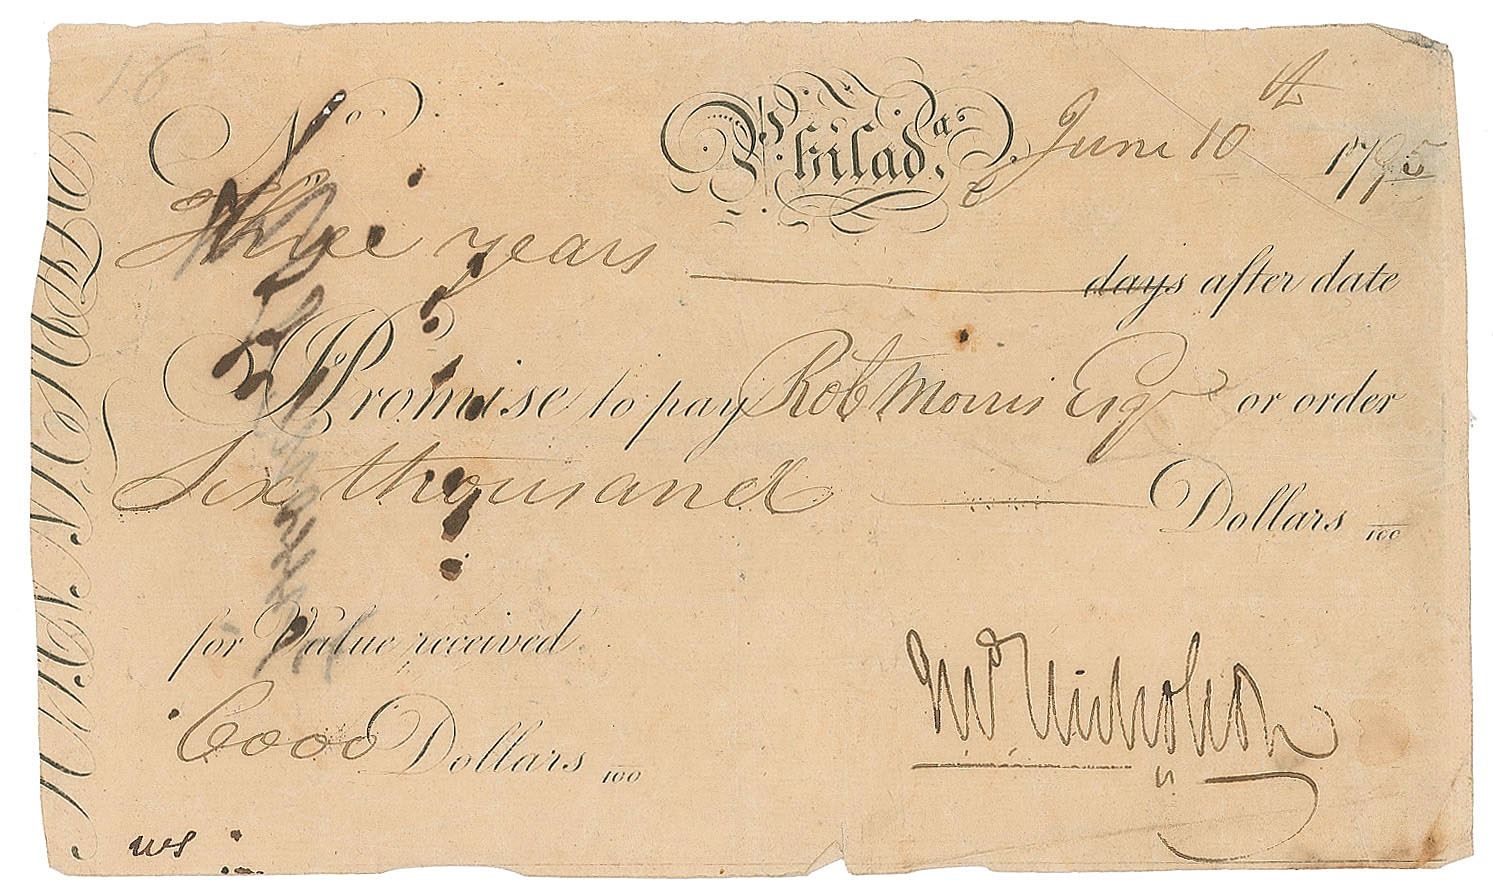 No.
Philad.ª June 10th 1795
Three years days after date
I Promise to pay Rob Morris Esqr or order
Six thousand Dollars /100
for Value received
6000 Dollars /100
Jno Nicholson